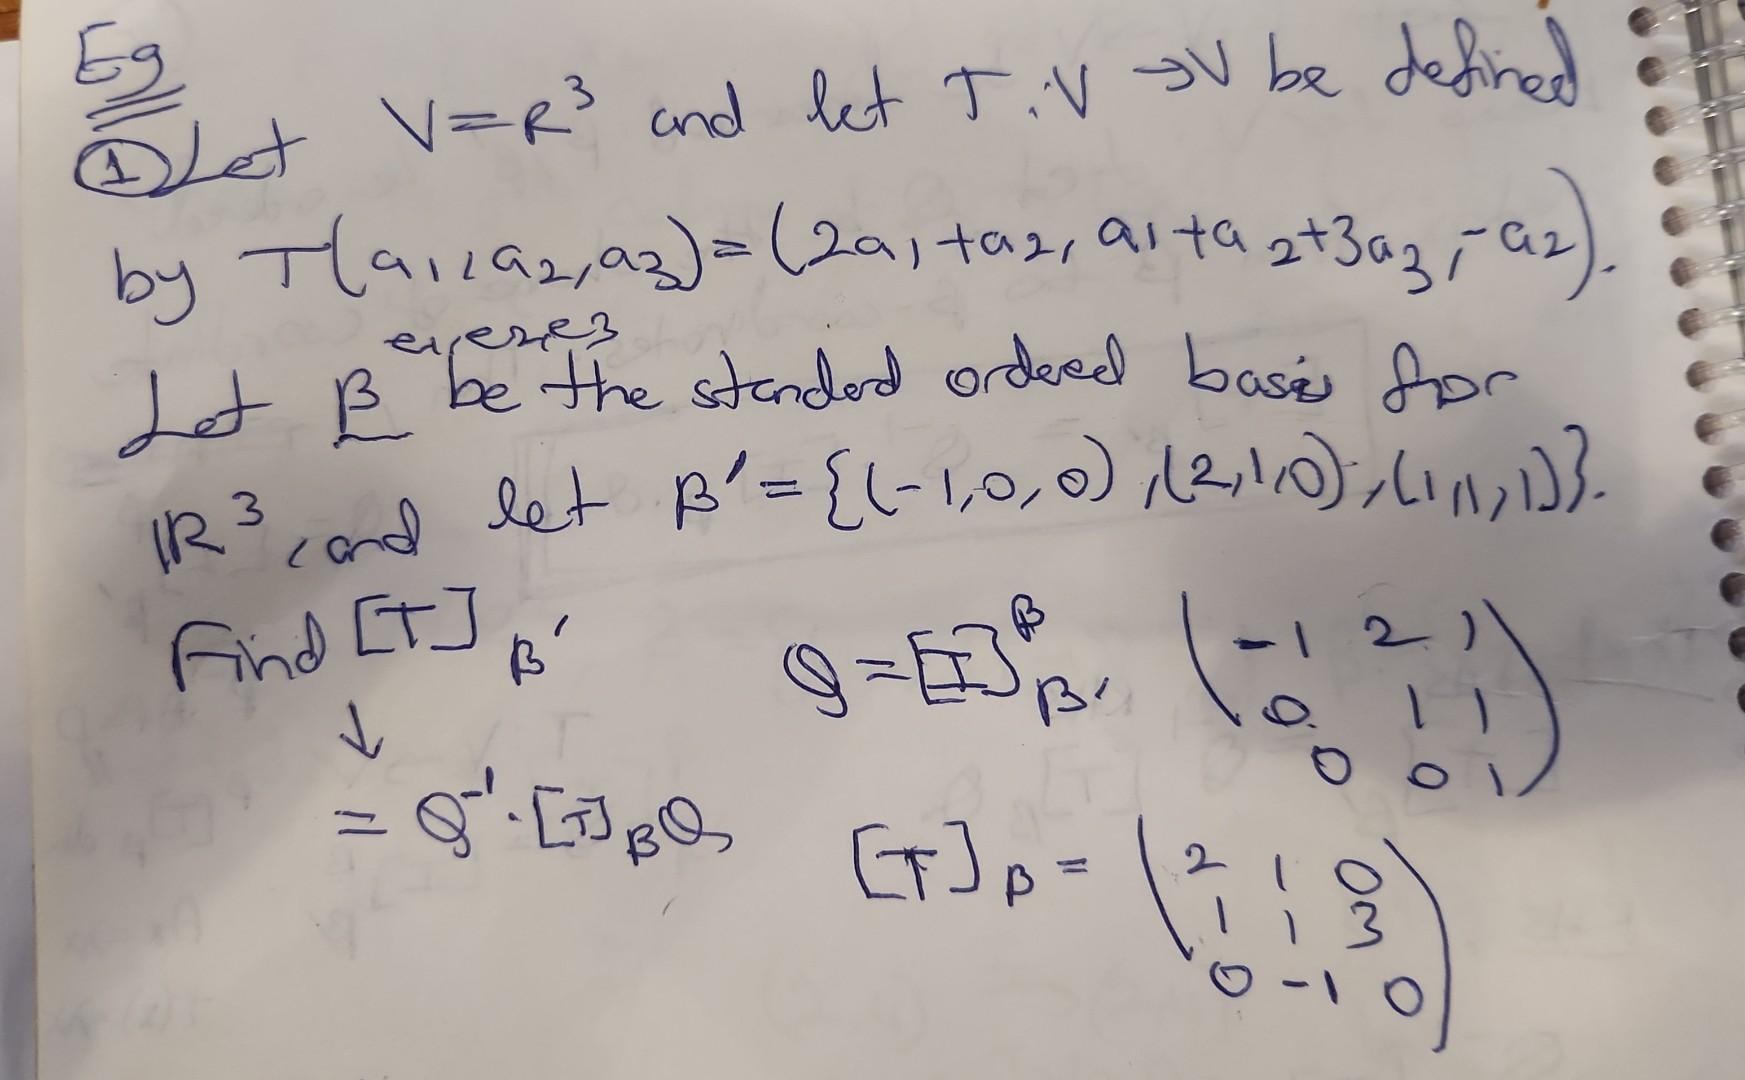 Eg
① Let V=R³ and let T:V →V be defined
by T(a₁,a₂,a₃)=(2a₁+a₂, a₁+a₂+3a₃,-a₂).
e₁,e₂,e₃
Let β be the standard ordered basis for
ℝ³, and let β'={(-1,0,0),(2,1,0),(1,1,1)}.
Find [T]β' Q=[I]β'^β (-1 2 1
0 1 1
0 0 1)
↓
= Q⁻¹·[T]βQ [T]β = (2 1 0
1 1 3
0 -1 0)